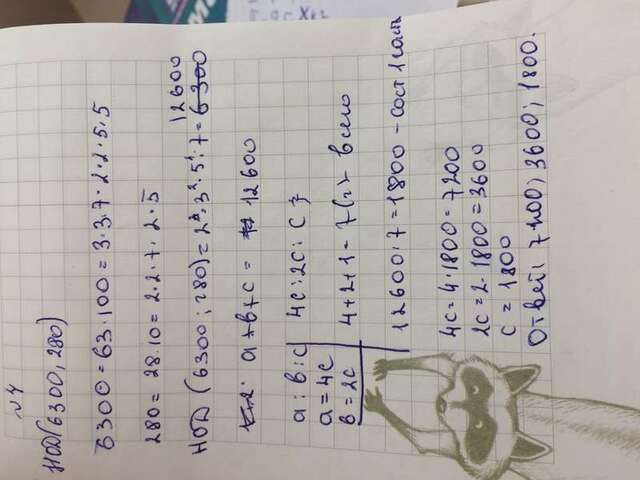 №4
НОД(6300, 280)
6300 = 63·100 = 3·3·7·2·2·5·5
280 = 28·10 = 2·2·7·2·5
12600
НОД (6300; 280) = 2³·3²·5¹·7 = 6300
a+b+c = 12600
a:b:c | 4c:2c:c
a = 4c
b = 2c
4+2+1 = 7(ч) - всего
12600:7 = 1800 - сост 1 часть
4c = 4·1800 = 7200
2c = 2·1800 = 3600
c = 1800
Ответ: 7200; 3600; 1800.